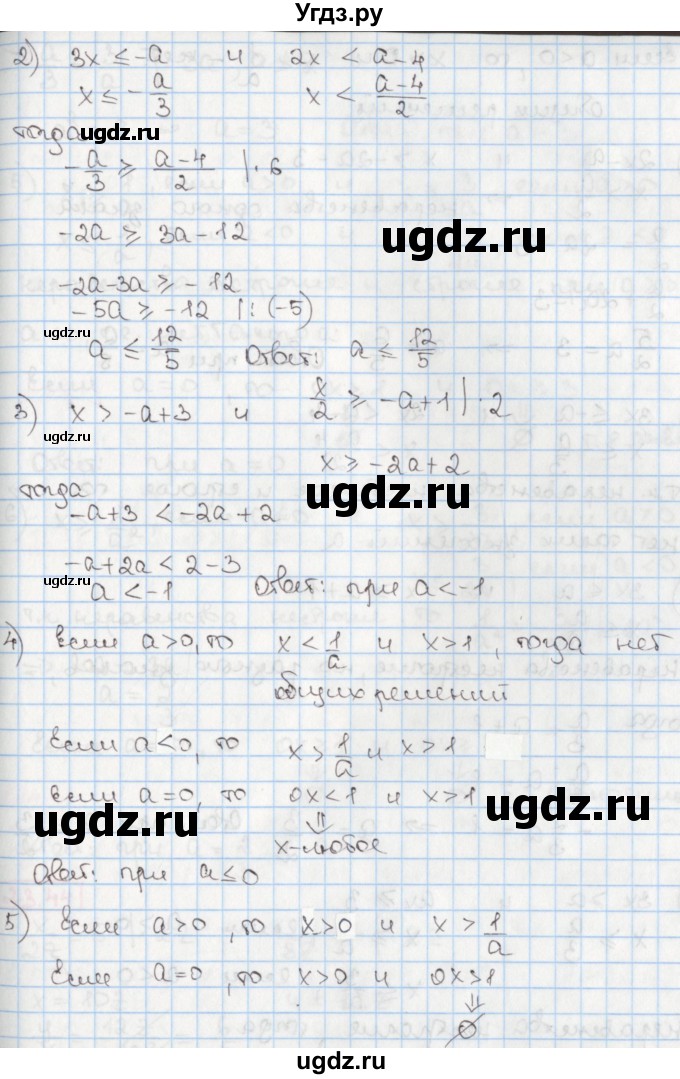 Угдз.ру
2) 3x ≤ -a и 2x < a-4
x ≤ -a/3 x < (a-4)/2
тогда
ugdz.ru
-a/3 ≥ (a-4)/2 |·6
-2a ≥ 3a-12
ugdz.ru
-2a-3a ≥ -12
-5a ≥ -12 |:(-5)
a ≤ 12/5 Ответ: a ≤ 12/5
3) x > -a+3 и x/2 ≥ -a+1 |·2
ugdz.ru
x ≥ -2a+2
тогда
ugdz.ru
-a+3 < -2a+2
-a+2a < 2-3
ugdz.ru
a < -1 Ответ: при a < -1
4) Если a>0, то x < 1/a и x>1, тогда нет
общих решений
Если a<0, то x > 1/a и x>1
Если a=0, то 0x<1 и x>1
ugdz.ru
ugdz.ru
⇓
x-любое
Ответ: при a≤0
5) Если a>0, то x>0 и x > 1/a
Если a=0, то x>0 и 0x>1
⇓
∅
ugdz.ru